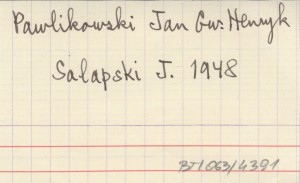 Pawlikowski Jan Gw. Henryk
Sałapski J. 1948
BT/063/4391